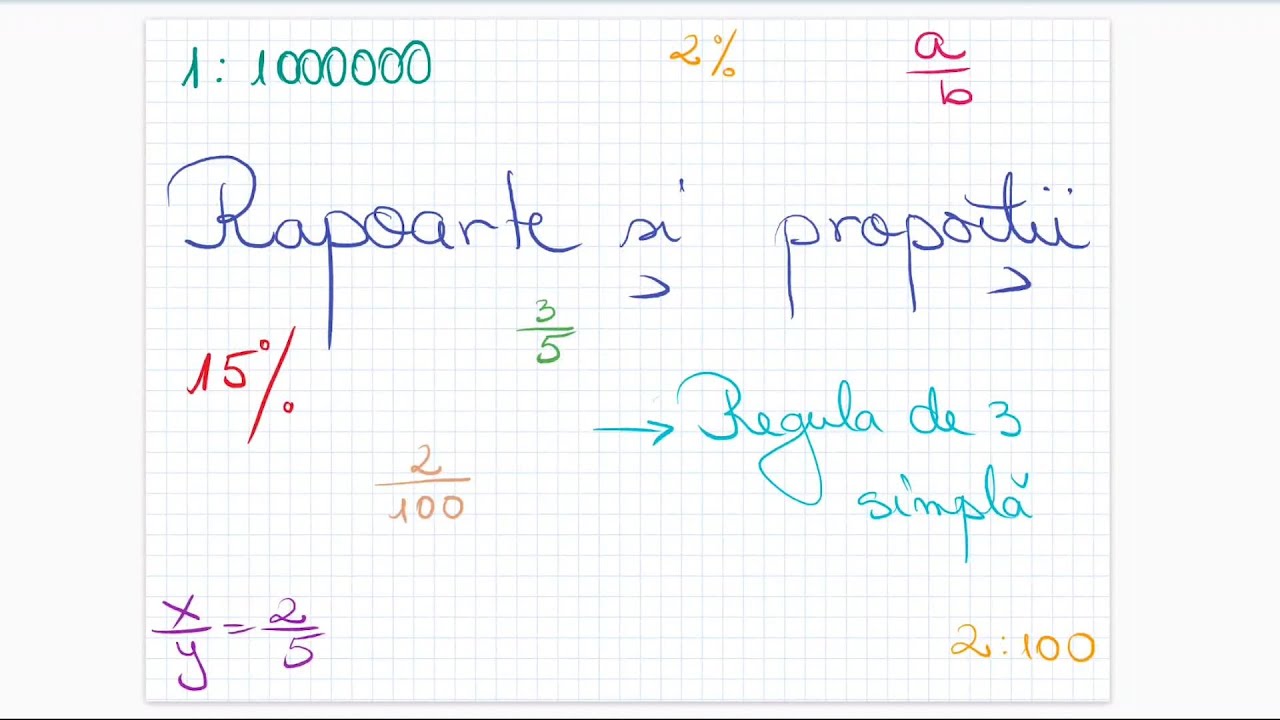 1 : 1000000
2%
a/b
Rapoarte și proporții
3/5
15%
→ Regula de 3
simplă
2/100
x/y = 2/5
2 : 100